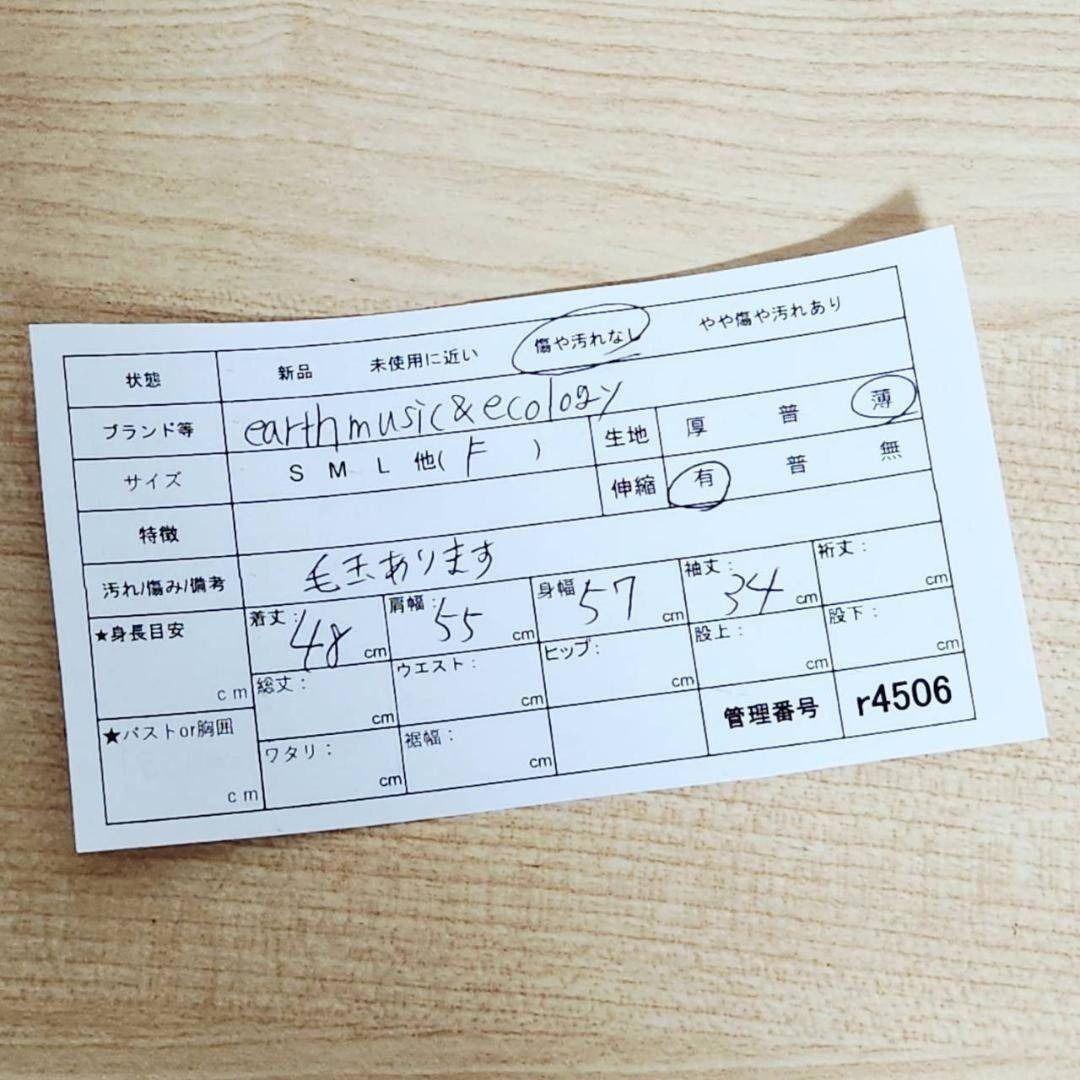 状態 新品 未使用に近い 傷や汚れなし やや傷や汚れあり
ブランド等 earth music & ecology
サイズ S M L 他( F ) 生地 厚 普 薄
特徴 伸縮 有 普 無
汚れ/傷み/備考 毛玉あります
★身長目安 cm 着丈: 48 cm 肩幅: 55 cm 身幅: 57 cm 袖丈: 34 cm 裄丈: cm
総丈: cm ウエスト: cm ヒップ: cm 股上: cm 股下: cm
★バストor胸囲 cm ワタリ: cm 裾幅: cm 管理番号 r4506